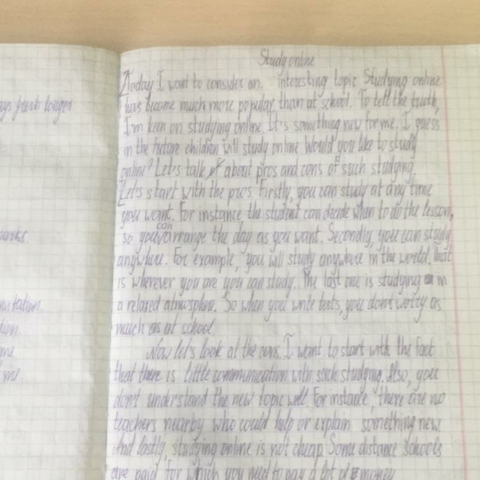 Study online
Today I want to consider an interesting topic Studying online
has become much more popular than at school. To tell the truth,
I'm keen on studying online. It's something new for me. I guess
in the future children will study online. Would you like to study
online? Let's talk about pros and cons of such studying.
Let's start with the pros. Firstly, you can study at any time
you want. For instance the student can decide when to do the lesson,
so you can arrange the day as you want. Secondly, you can study
anywhere. For example, you will study anywhere in the world, that
is wherever you are you can study. The last one is studying in
a relaxed atmosphere. So when you write tests, you don't worry as
much as at school.
Now let's look at the cons. I want to start with the fact
that there is little communication with such studying. Also, you
don't understand the new topic well. For instance, there are no
teachers nearby who could help or explain something new.
And lastly, studying online is not cheap. Some distance schools
are paid, for which you need to pay a lot of money